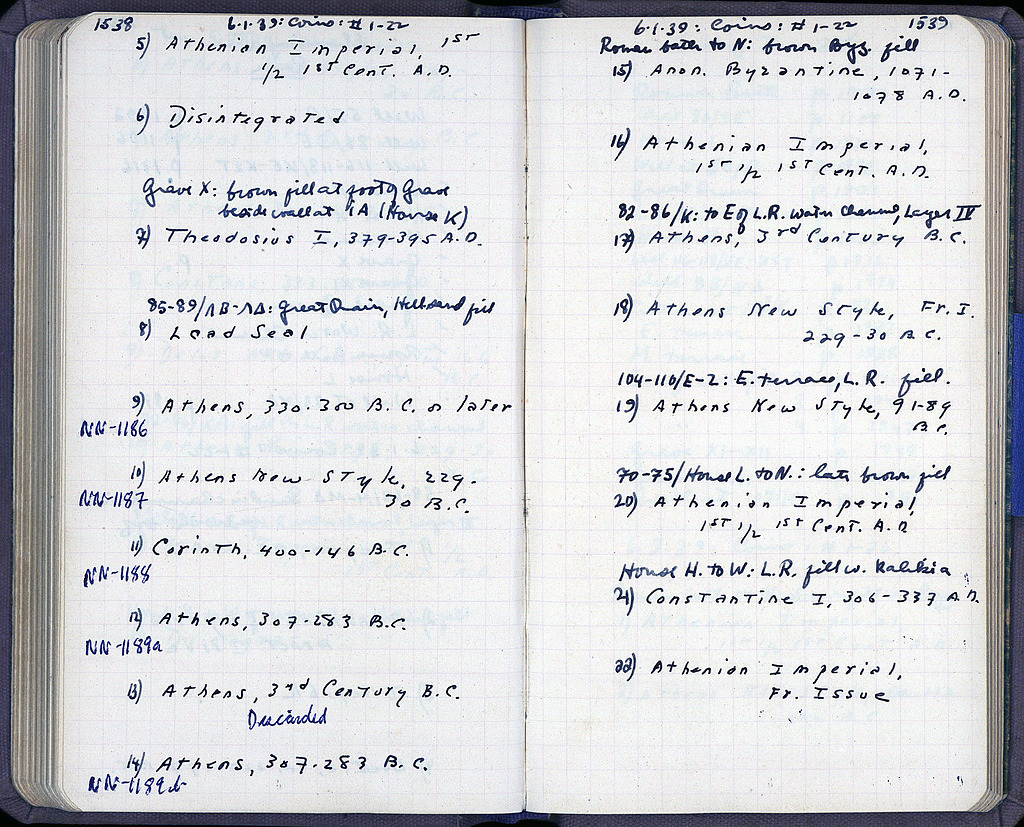 1538
6.1.39: Coins: # 1-22
5) Athenian Imperial, 1ST
1/2 1ST Cent. A.D.
6) Disintegrated
Grave X: brown fill at foot of Grave
beside wall at 1A (House K)
7) Theodosius I, 379-395 A.D.
85-89/ΛΒ-ΛΔ: Great Drain, Hell. sand fill
8) Lead Seal
9) Athens, 330-300 B.C. or later
NN-1186
10) Athens New Style, 229-
NN-1187
30 B.C.
11) Corinth, 400-146 B.C.
NN-1188
12) Athens, 307-283 B.C.
NN-1189a
13) Athens, 3rd Century B.C.
Descarded
14) Athens, 307-283 B.C.
NN-1189b
6.1.39: Coins: # 1-22
1539
Roman bath to N: brown Byz. fill
15) Anon. Byzantine, 1071-
1078 A.D.
16) Athenian Imperial,
1ST 1/2 1ST Cent. A.D.
82-86/K: to E of L.R. water channel, Layer IV
17) Athens, 3rd Century B.C.
18) Athens New Style, Fr. I.
229-30 B.C.
104-110/E-Z: E. terrace, L.R. fill.
19) Athens New Style, 91-89
B.C.
70-75/House L. to N.: late brown fill
20) Athenian Imperial,
1ST 1/2 1ST Cent. A.D.
House H. to W: L.R. fill w. Kalikia
21) Constantine I, 306-337 A.D.
22) Athenian Imperial,
Fr. Issue